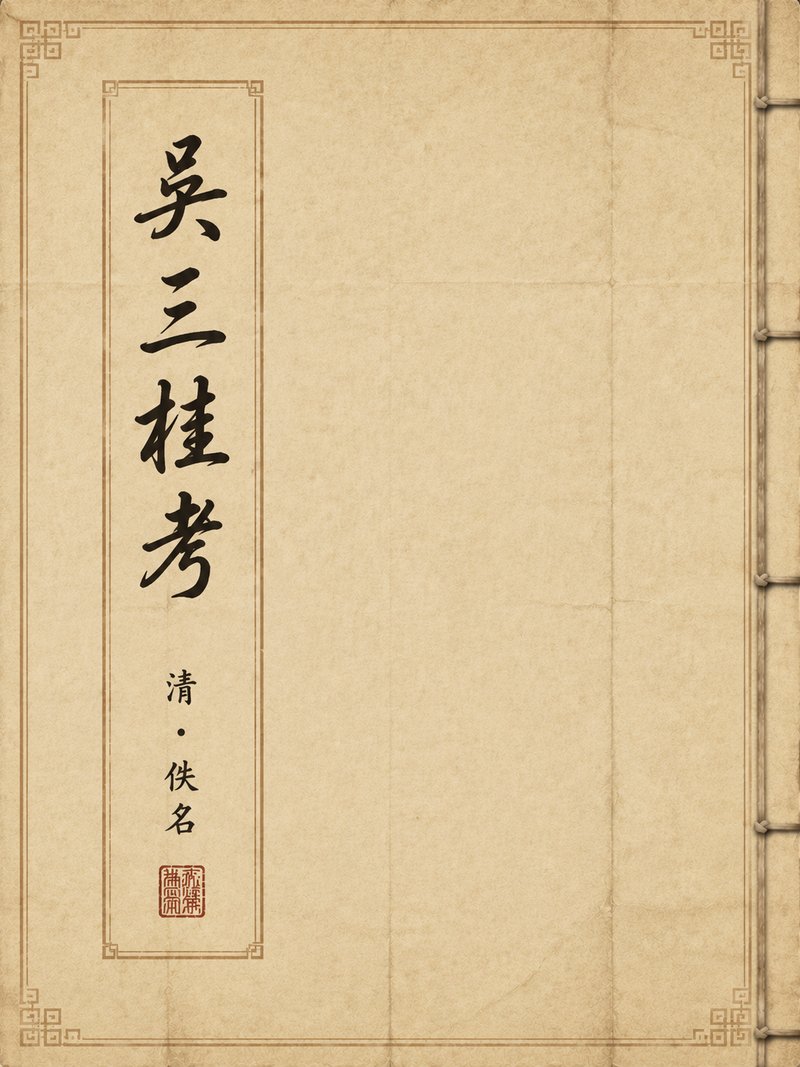 吳三桂考
清·佚名